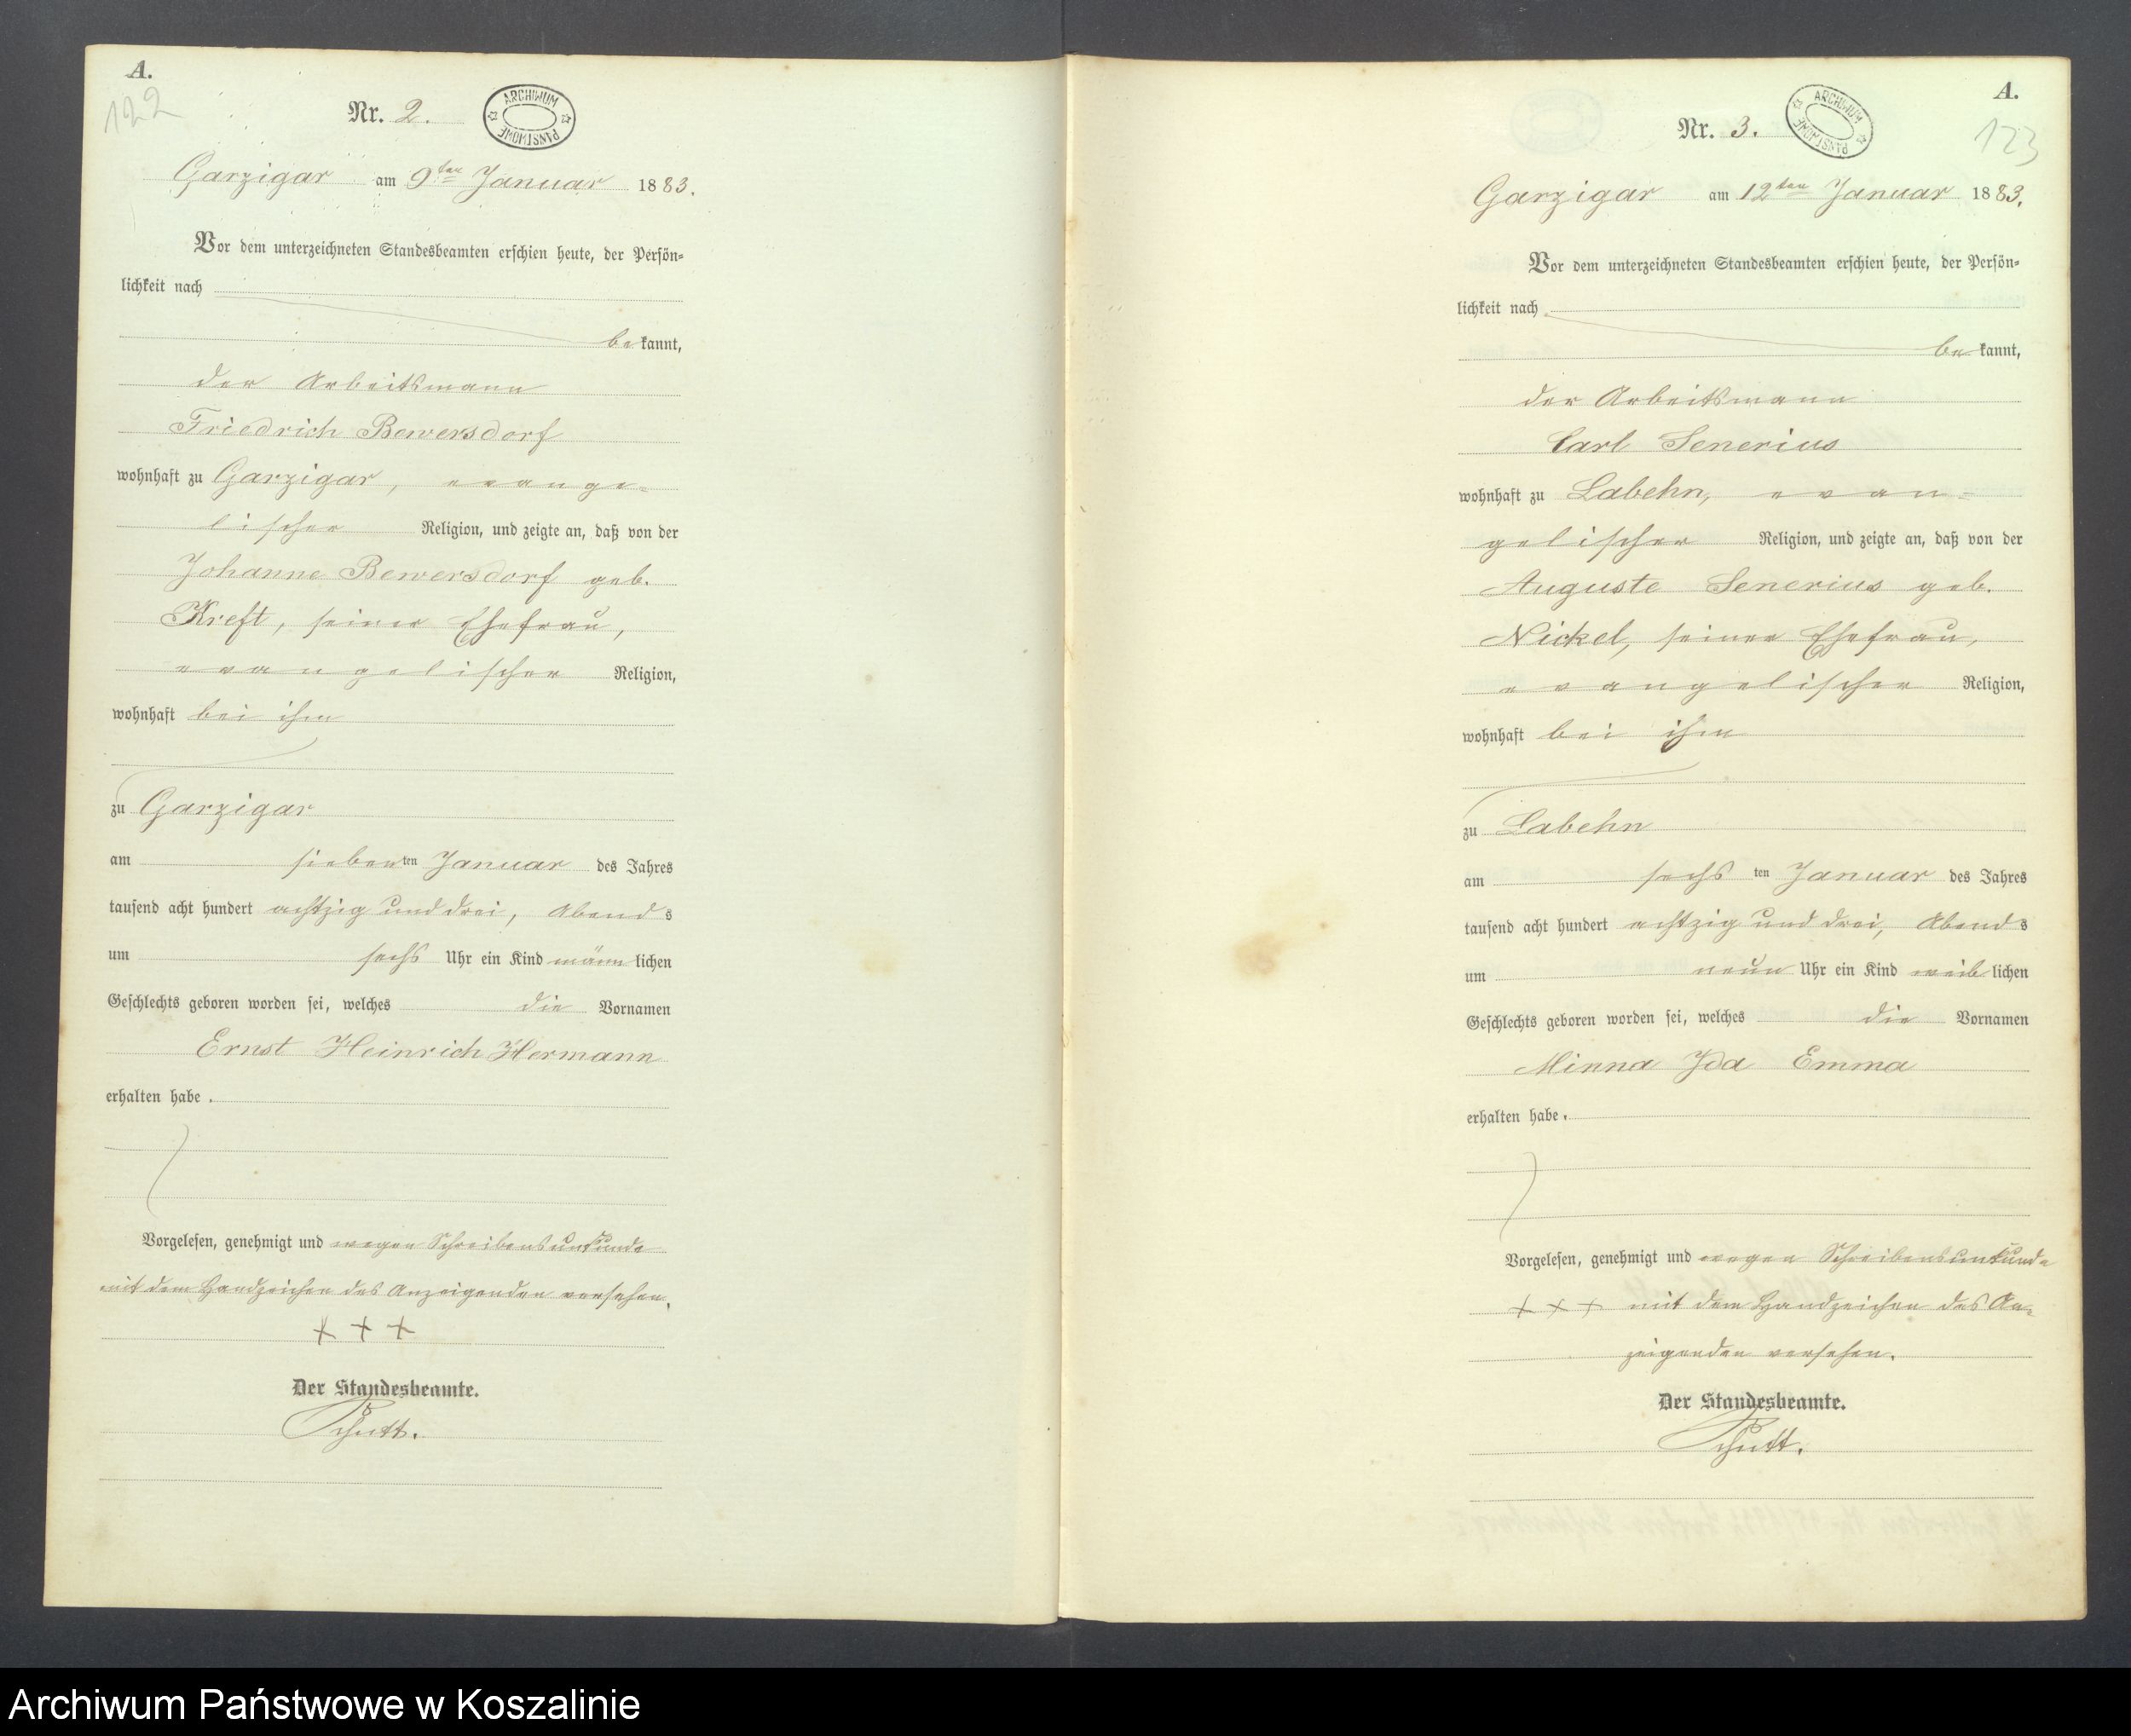 A.
122
Nr. 2.
ARCHIWUM PAŃSTWOWE
Garzigar am 9ten Januar 1883.
Vor dem unterzeichneten Standesbeamten erschien heute, der Persön-
lichkeit nach
bekannt,
der Arbeitsmann
Friedrich Bewersdorf
wohnhaft zu Garzigar, evange-
lischer Religion, und zeigte an, daß von der
Johanne Bewersdorf geb.
Kreft, seiner Ehefrau,
evangelischer Religion,
wohnhaft bei ihm
zu Garzigar
am siebenten Januar des Jahres
tausend acht hundert achtzig und drei, Abends
um sechs Uhr ein Kind männlichen
Geschlechts geboren worden sei, welches die Vornamen
Ernst Heinrich Hermann
erhalten habe.
Vorgelesen, genehmigt und wegen Schreibensunkunde
mit dem Handzeichen des Anzeigenden versehen.
+ + +
Der Standesbeamte.
Schutt.
A.
123
Nr. 3.
ARCHIWUM PAŃSTWOWE
Garzigar am 12ten Januar 1883.
Vor dem unterzeichneten Standesbeamten erschien heute, der Persön-
lichkeit nach
bekannt,
der Arbeitsmann
Carl Senerius
wohnhaft zu Labehn, evan-
gelischer Religion, und zeigte an, daß von der
Auguste Senerius geb.
Nickel, seiner Ehefrau,
evangelischer Religion,
wohnhaft bei ihm
zu Labehn
am sechsten Januar des Jahres
tausend acht hundert achtzig und drei, Abends
um neun Uhr ein Kind weiblichen
Geschlechts geboren worden sei, welches die Vornamen
Minna Ida Emma
erhalten habe.
Vorgelesen, genehmigt und wegen Schreibensunkunde
+ + + mit dem Handzeichen des An-
zeigenden versehen.
Der Standesbeamte.
Schutt.
Archiwum Państwowe w Koszalinie